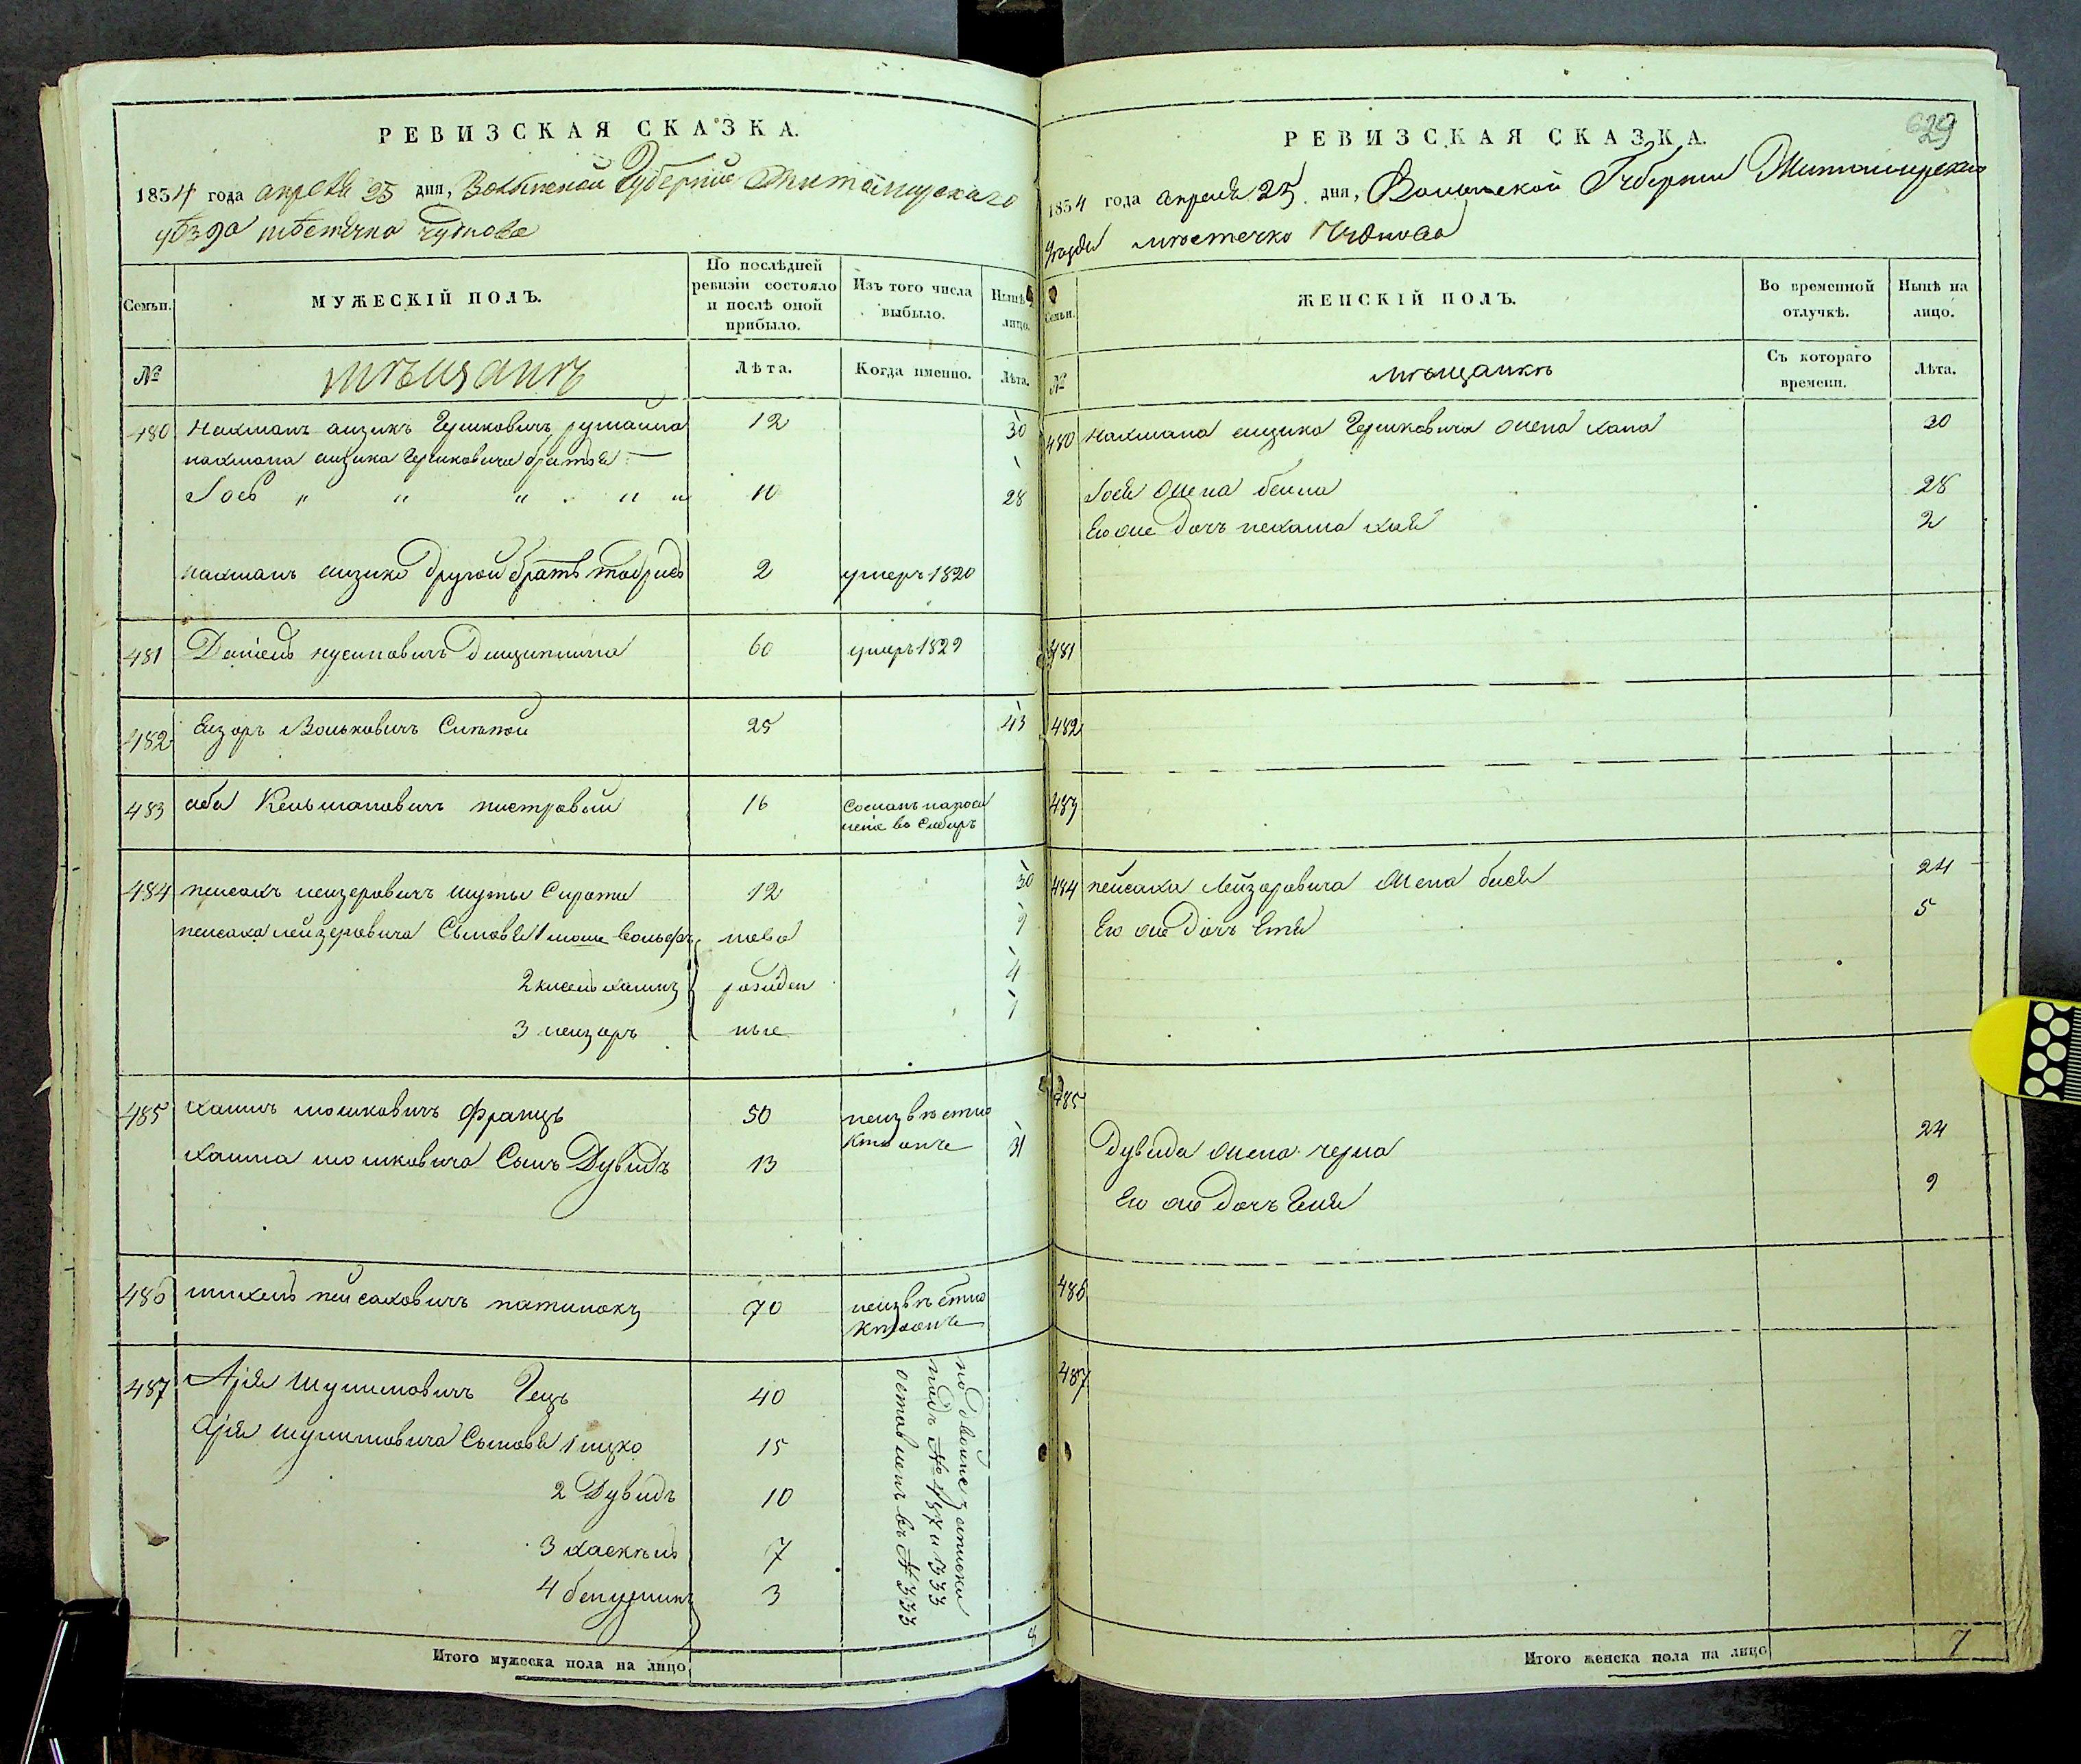 РЕВИЗСКАЯ СКАЗКА.
1834 года апреля 25 дня, Волынской Губернии Житомирскаго
уѣзда мѣстечка Чуднова
Семьи.
МУЖЕСКІЙ ПОЛЪ.
По послѣдней ревизіи состояло и послѣ оной прибыло.
Изъ того числа выбыло.
Нынѣ лицо.
№
мѣщанъ
Лѣта.
Когда именно.
Лѣта.
480 Нахманъ аизикъ Гершковичъ 12 30
нахмана аизика Гершковича братья
Іосъ " " " " " 10 28
нахманъ аизика другой братъ 2 умеръ 1820
481 Даніель нусиновичъ 60 умеръ 1829
482 Еизоръ Вольковичъ Слѣпой 25 43
483 аба Кельмановичъ пистровый 16 Сосланъ на поселеніе въ Сибирь
484 пейсахъ лейзеровичъ Сирота 12 30
пейсаха лейзеровича Сыновья 1 мошко вольфъ ново 9
2 кисель хаимъ рожден 4
3 лейзоръ ные 1
485 хаимъ мошковичъ Францъ 50 неизвѣстно кто онъ
хаима мошковича Сынъ Дувидъ 13 31
486 михель пейсаховичъ 70 неизвѣстно кто онъ
487 Арія Шулимовичъ Гецъ 40
Арія шулимовича Сыновья 1 ицко 15
2 Дувидъ 10
3 хаскѣль 7
4 беньуминъ 3
по двоине записки
подъ № 487 и 333
оставленъ въ № 333
Итого мужеска пола на лицо 8
629
РЕВИЗСКАЯ СКАЗКА.
1834 года апреля 25 дня, Волынской Губернии Житомирскаго
Уезда мѣстечка Чуднова
Семьи.
ЖЕНСКІЙ ПОЛЪ.
Во временной отлучкѣ.
Нынѣ на лицо.
№
мѣщанкъ
Съ котораго времени.
Лѣта.
480 Нахмана аизика Гершковича жена хана 30
Іося жена бейла 28
Его же дочь нехама хая 2
481
482
483
484 пейсаха лейзоровича жена бися 24
Его же дочь Етя 5
485
Дувида жена черна 24
Его же дочь Геня 9
486
487
Итого женска пола на лицо 7